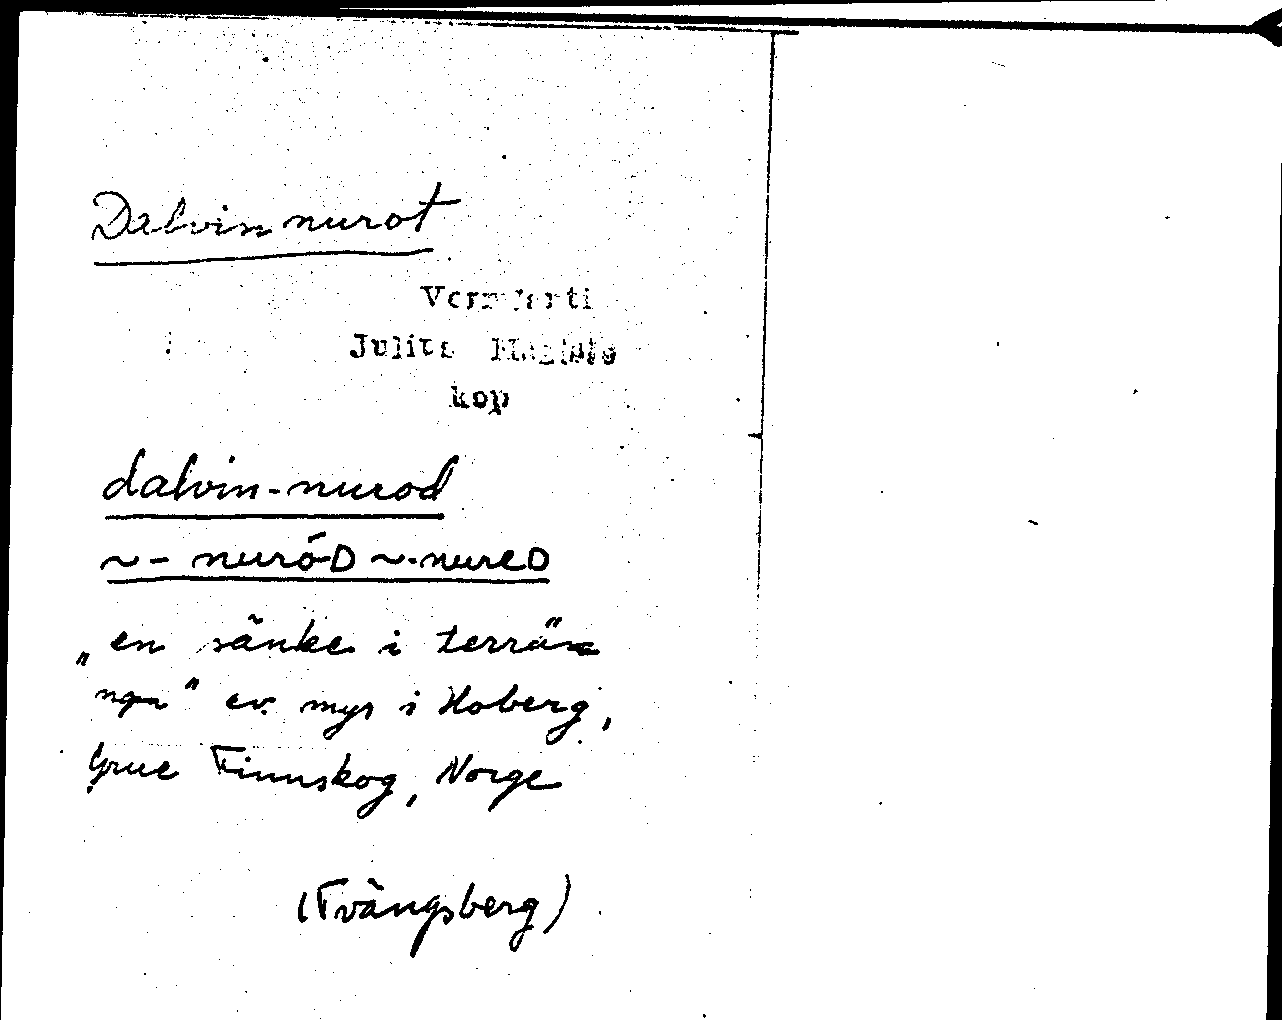 Dalvin nurot
Vermlanti
Julius Mägiste
kop
dalvin-nurod
~ - nuró-D ~ -nureD
„en sänke i terrän
ngn" ev. myr i Hoberg,
Grue Finnskog, Norge
(Tvängsberg)